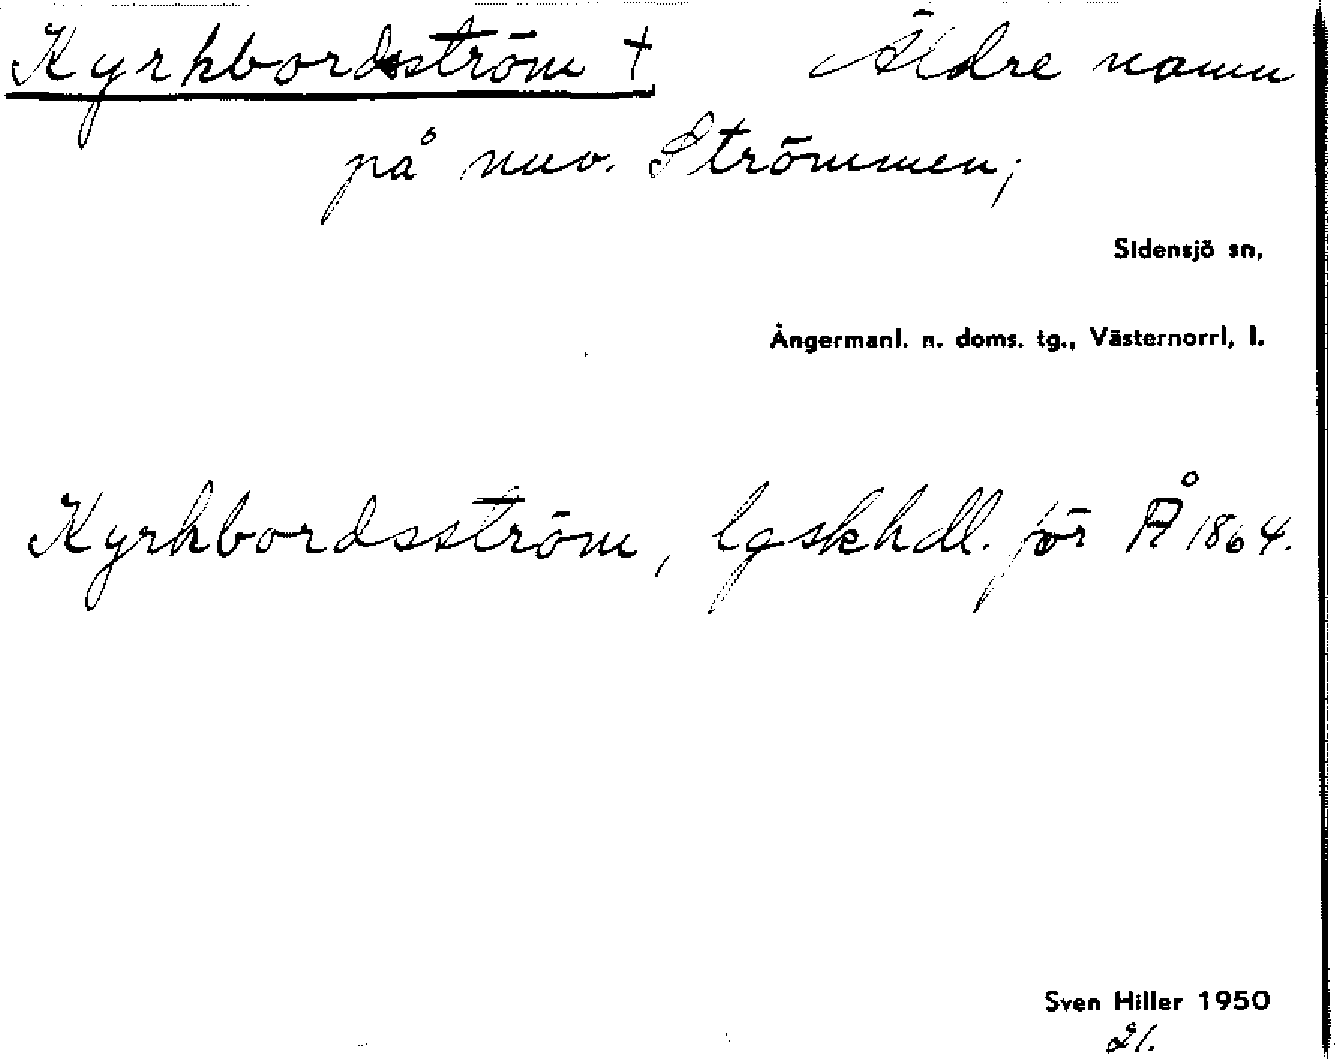 Kyrkbordsström † Äldre namn
på nuv. Strömmen;
Sidensjö sn,
Ångermanl. n. doms. tg., Västernorrl, l.
Kyrkbordsström, lgskhdl. för Å 1864.
Sven Hiller 1950
21.